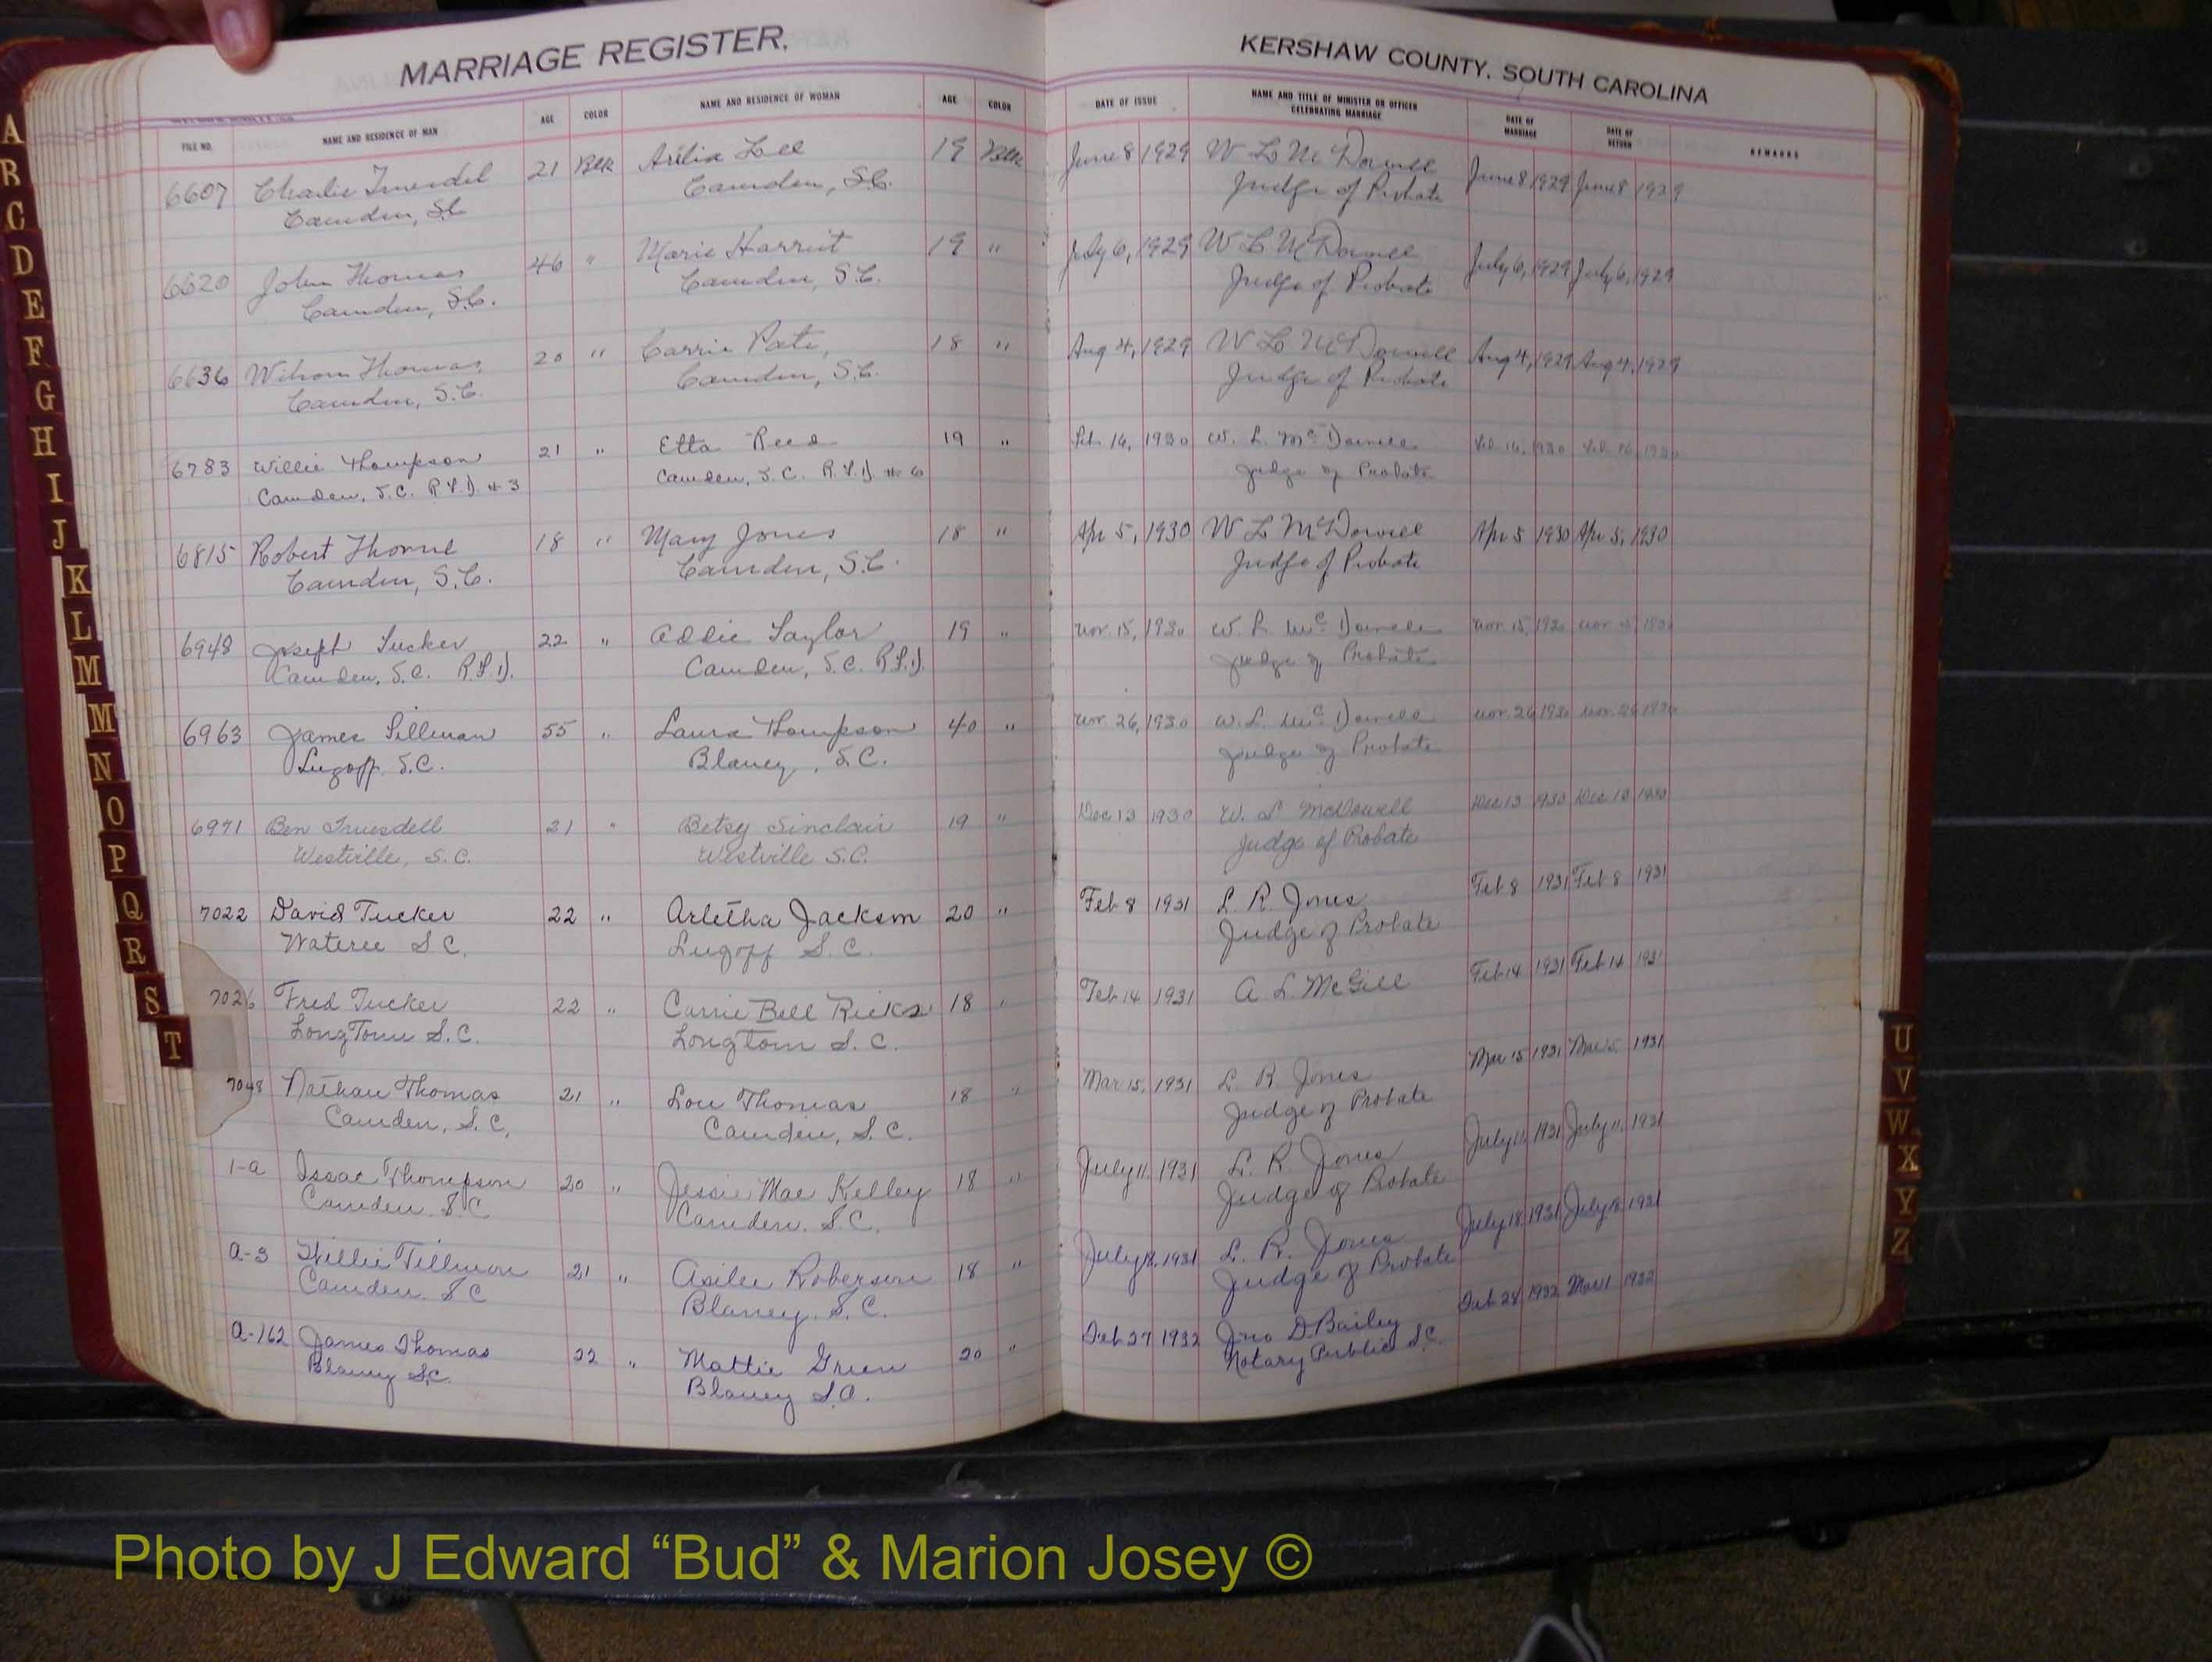 MARRIAGE REGISTER.
KERSHAW COUNTY, SOUTH CAROLINA
FILE NO. NAME AND RESIDENCE OF MAN AGE COLOR NAME AND RESIDENCE OF WOMAN AGE COLOR DATE OF ISSUE NAME AND TITLE OF MINISTER OR OFFICER CELEBRATING MARRIAGE DATE OF MARRIAGE DATE OF RETURN REMARKS
6607 Charlie Truesdel 21 Blk Lee 19 Blk June 8 1929 W L McDowell June 8, 1929 June 8 1929
Camden, S.C. Camden, S.C. Judge of Probate
6620 John Thomas 46 " Marie Harriet 19 " July 6, 1929 W L McDowell July 6, 1929 July 6, 1929
Camden, S.C. Camden, S.C. Judge of Probate
6636 Wilson Thomas, 20 " Carrie Pate, 18 " Aug 4, 1929 W L McDowell Aug 4, 1929 Aug 4, 1929
Camden, S.C. Camden, S.C. Judge of Probate
6783 Willie Thompson 21 " Etta Reed 19 " Feb. 16, 1930 W. L. McDowell Feb. 16, 1930 Feb. 16, 1930
Camden, S.C. R.F.D. #3 Camden, S.C. R.F.D. #6 Judge of Probate
6815 Robert Thorne 18 " Mary Jones 18 " Apr 5, 1930 W L McDowell Apr 5 1930 Apr 5, 1930
Camden, S.C. Camden, S.C. Judge of Probate
6948 Joseph Tucker 22 " Addie Taylor 19 " Nov. 15, 1930 W. L. McDowell Nov. 15, 1930 Nov. 15 1930
Camden, S.C. R.F.D. Camden, S.C. R.F.D. Judge of Probate
6963 James Tillman 55 " Laura Thompson 40 " Nov. 26, 1930 W. L. McDowell Nov. 26 1930 Nov. 26 1930
Lugoff, S.C. Blaney, S.C. Judge of Probate
6971 Ben Truesdell 21 " Betsy Sinclair 19 " Dec 13 1930 W. L. McDowell Dec 13 1930 Dec 13 1930
Westville, S.C. Westville S.C. Judge of Probate
7022 David Tucker 22 " Arletha Jackson 20 " Feb 8 1931 L. R. Jones Feb 8 1931 Feb 8 1931
Wateree S.C. Lugoff S.C. Judge of Probate
7026 Fred Tucker 22 " Carrie Bell Ricks 18 " Feb 14 1931 A. L. McGill Feb 14 1931 Feb 14 1931
LongTown S.C. LongTown S.C.
7048 Nathan Thomas 21 " Lou Thomas 18 " Mar 15, 1931 L. R. Jones Mar 15 1931 Mar 15 1931
Camden, S.C. Camden, S.C. Judge of Probate
1-a Issac Thompson 20 " Jessie Mae Kelley 18 " July 11, 1931 L. R. Jones July 11, 1931 July 11, 1931
Camden S.C Camden. S.C. Judge of Probate
a-3 Willie Tillmon 21 " Roberson 18 " July 18, 1931 L. R. Jones July 18 1931 July 18 1931
Camden. S C Blaney. S.C. Judge of Probate
a-162 James Thomas 22 " Mattie Green 20 " Feb 27 1932 Jno D. Bailey Feb 28 1932 Mar 1 1932
Blaney S.C. Blaney S.C. Notary Public S.C.
A
B
C
D
E
F
G
H
I
J
K
L
M
M
N
O
P
Q
R
S
T
U
V
W
X
Y
Z
Photo by J Edward “Bud” & Marion Josey ©